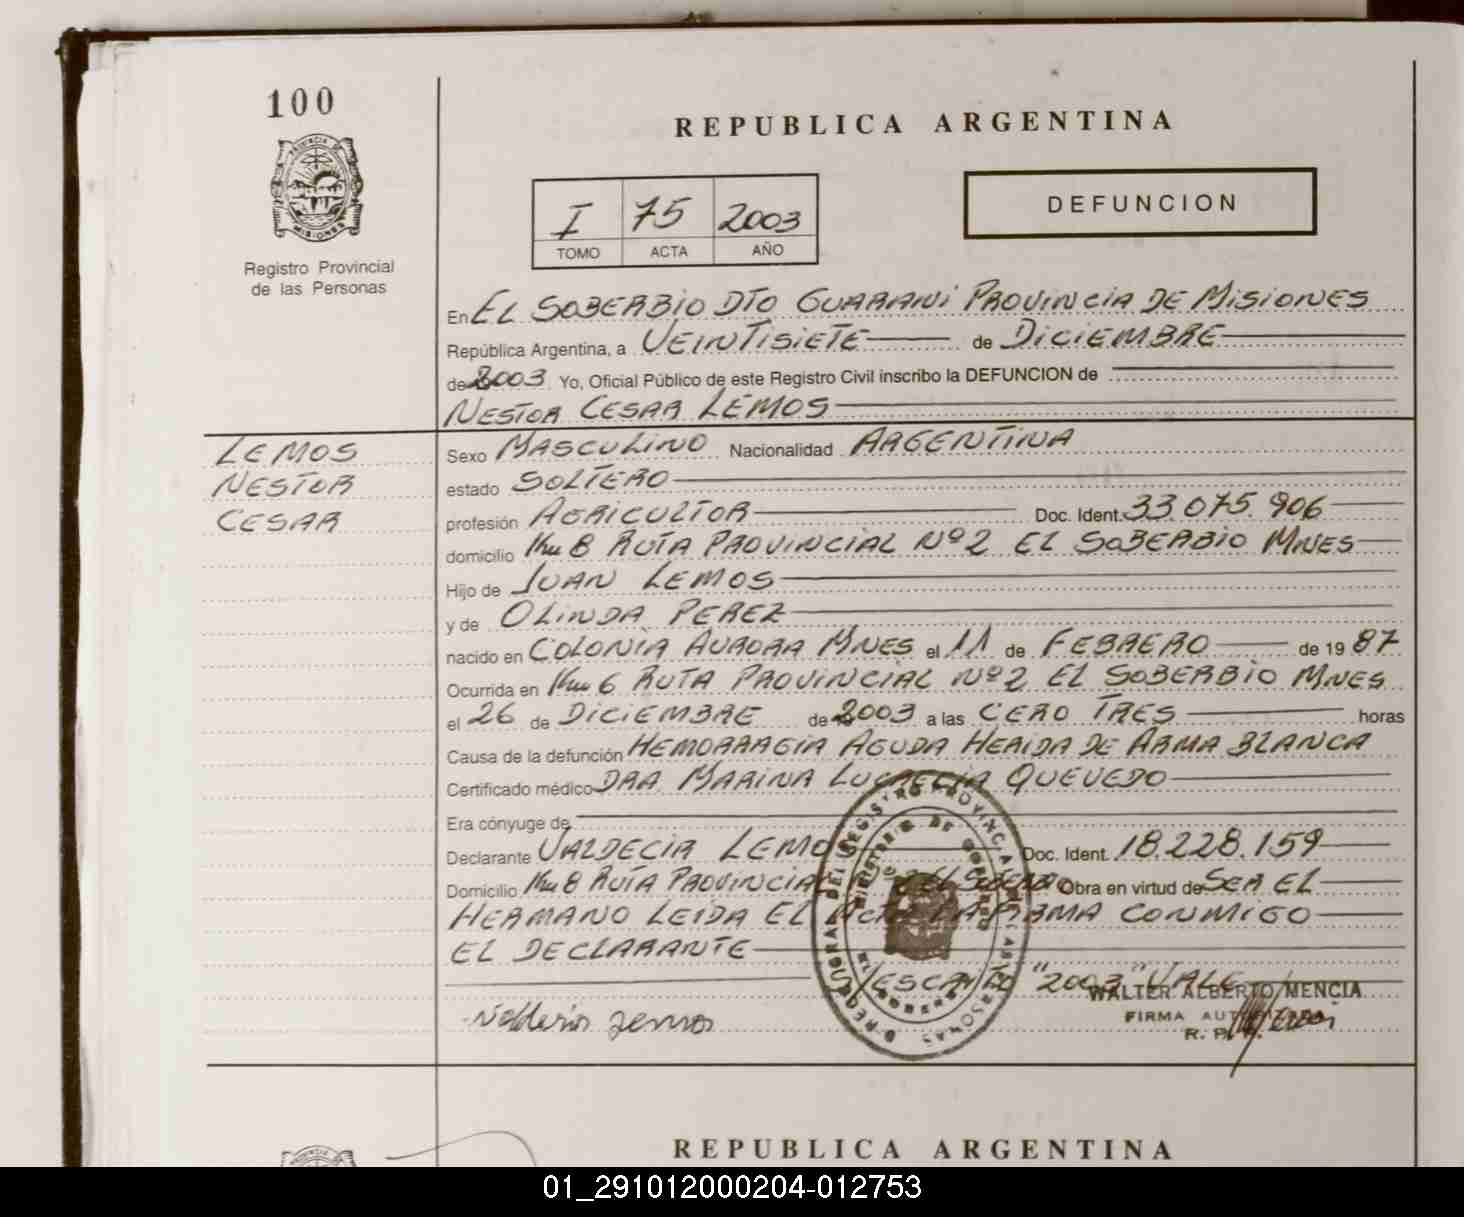 100
REPUBLICA ARGENTINA
PROVINCIA DE
MISIONES
Registro Provincial
de las Personas
I 75 2003
TOMO ACTA AÑO
DEFUNCION
En EL SOBERBIO DTO GUARANI PROVINCIA DE MISIONES
República Argentina, a VEINTISIETE de DICIEMBRE
de 2003 Yo, Oficial Público de este Registro Civil inscribo la DEFUNCION de
NESTOR CESAR LEMOS
LEMOS
NESTOR
CESAR
Sexo MASCULINO Nacionalidad ARGENTINA
estado SOLTERO
profesión AGRICULTOR Doc. Ident. 33.075.906
domicilio Km 8 RUTA PROVINCIAL Nº2 EL SOBERBIO MNES
Hijo de JUAN LEMOS
y de OLINDA PEREZ
nacido en COLONIA AURORA MNES el 11 de FEBRERO de 19 87
Ocurrida en Km 6 RUTA PROVINCIAL Nº2 EL SOBERBIO MNES
el 26 de DICIEMBRE de 2003 a las CERO TRES horas
Causa de la defunción HEMORRAGIA AGUDA HERIDA DE ARMA BLANCA
Certificado médico DRA. MARINA LUCRECIA QUEVEDO
Era cónyuge de
Declarante VALDECIR LEMOS Doc. Ident. 18.228.159
Domicilio Km 8 RUTA PROVINCIAL EL SOBERBIO Obra en virtud de SER EL
HERMANO LEIDA EL ACTA LA FIRMA CONMIGO
EL DECLARANTE
"2003" VALE
WALTER ALBERTO MENCIA
FIRMA AUTORIZADA
R. P. P.
REPUBLICA ARGENTINA
01_291012000204-012753